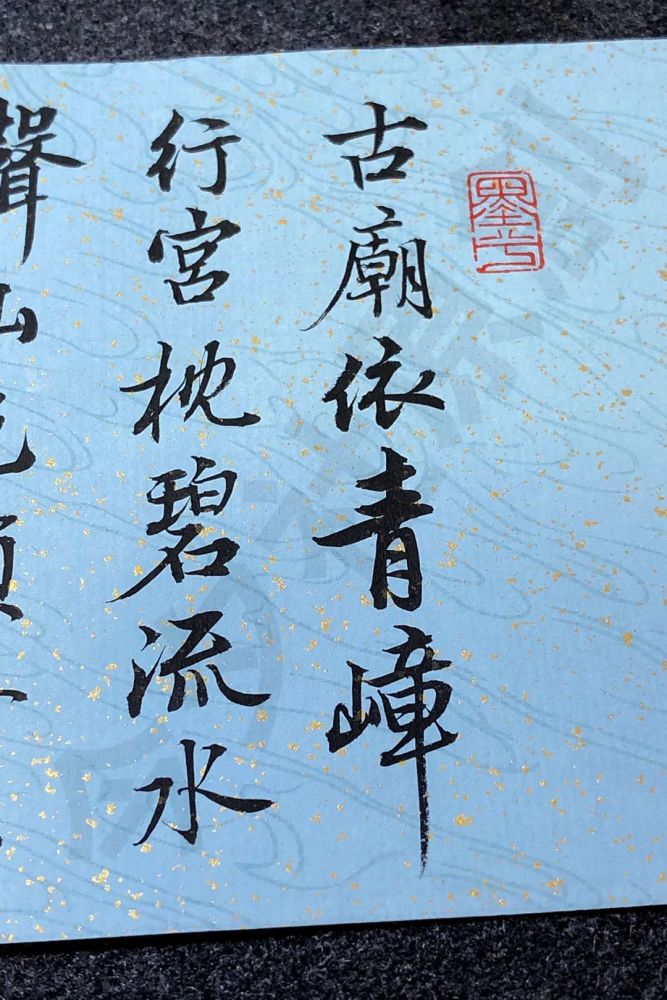 古廟依青嶂
行宮枕碧流水
聲山